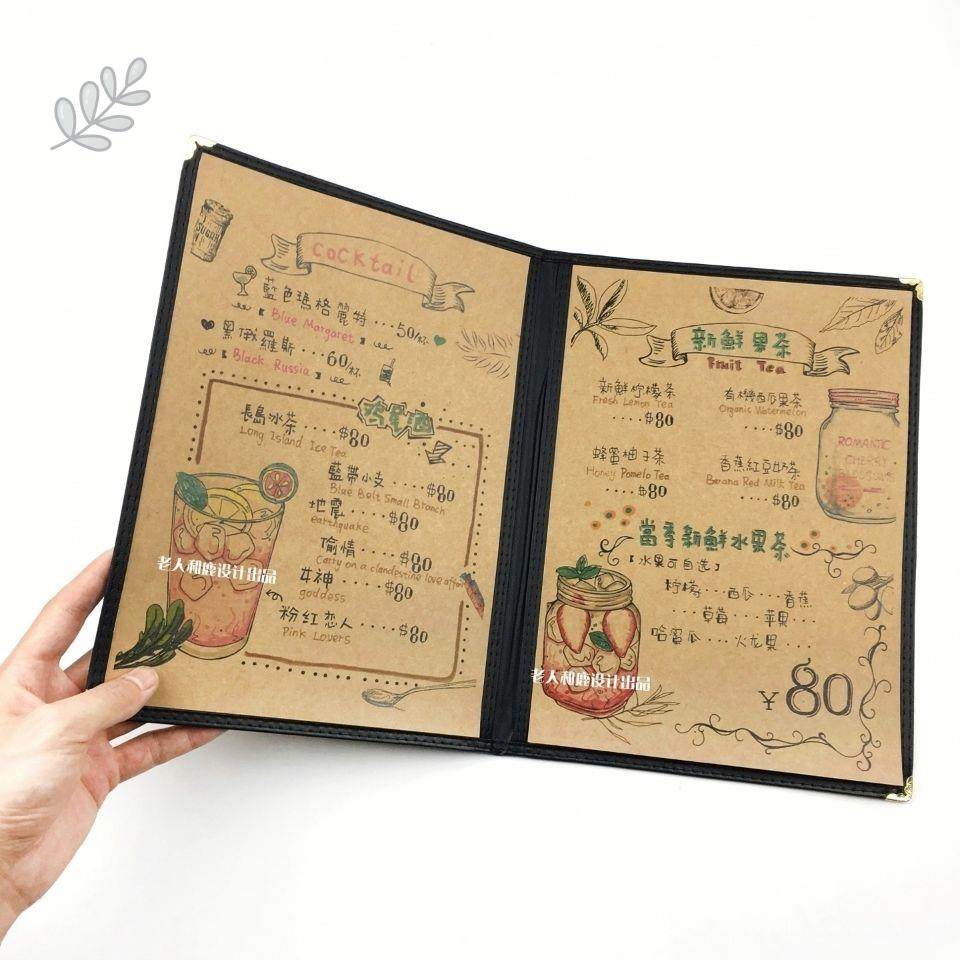 SUGAR
COCKtail
藍色瑪格麗特...50/杯
【Blue Margaret】
黑俄羅斯...60/杯
【Black Russia】
鸡尾酒
長島冰茶....$80
Long Island Ice Tea
藍帶小支....$80
Blue Belt Small Branch
地震....$80
earthquake
偷情....$80
Carry on a clandestine love affair
女神....$80
goddess
粉红恋人....$80
Pink Lovers
老人和鹿设计出品
新鮮果茶
Fruit Tea
新鮮柠檬茶
Fresh Lemon Tea
....$80
有機西瓜果茶
Organic Watermelon
....$80
蜂蜜柚子茶
Honey Pomelo Tea
....$80
香蕉紅豆奶茶
Banana Red Milk Tea
....$80
ROMANTIC
CHERRY
當季新鮮水果茶
【水果可自选】
柠檬...西瓜...香蕉
...草莓...苹果...
哈蜜瓜...火龙果...
¥80
老人和鹿设计出品